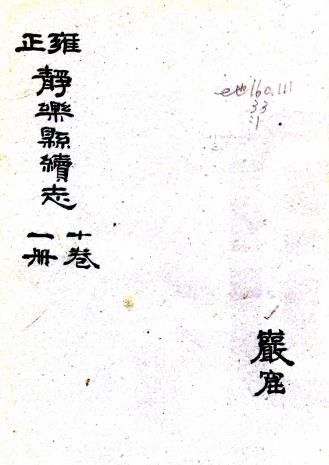 雍正
靜樂縣續志
十卷
一册
巖窟
e地160.111
33
:1